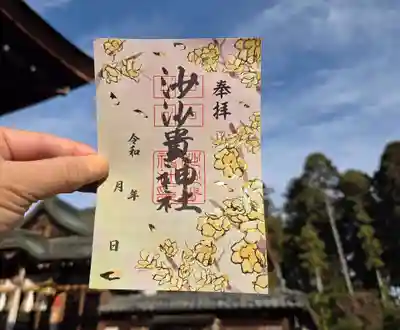 奉拝
沙沙貴神社
令和 年
月
日